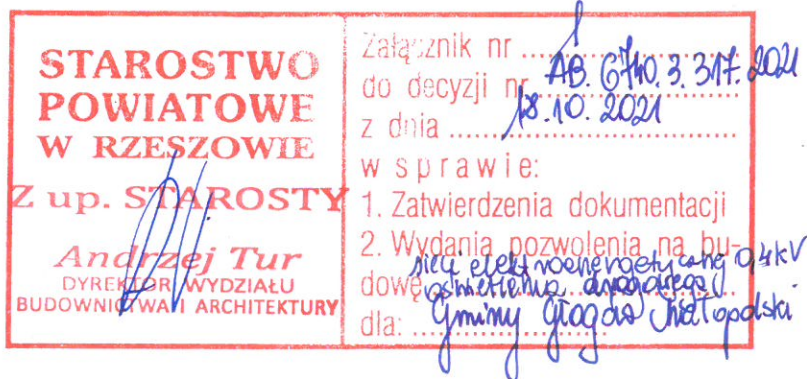 STAROSTWO
POWIATOWE
W RZESZOWIE
Z up. STAROSTY
Andrzej Tur
DYREKTOR WYDZIAŁU
BUDOWNICTWA I ARCHITEKTURY
Załącznik nr 1
do decyzji nr AB.6740.3.317.2021
z dnia 18.10.2021
w sprawie:
1. Zatwierdzenia dokumentacji
2. Wydania pozwolenia na bu-
dowę sieci elektroenergetycznej 0,4kV
oświetlenia drogowego
dla: Gminy Głogów Małopolski